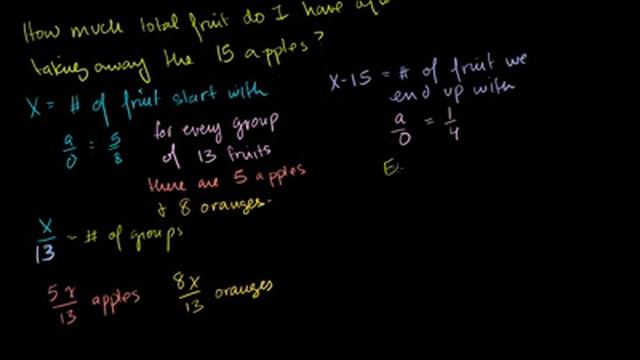 How much total fruit do I have after
taking away the 15 apples?
X = # of fruit start with
a/o = 5/8
for every group
of 13 fruits
there are 5 apples
+ 8 oranges.
x/13 = # of groups
5x/13 apples 8x/13 oranges
X-15 = # of fruit we
end up with
a/o = 1/4
E